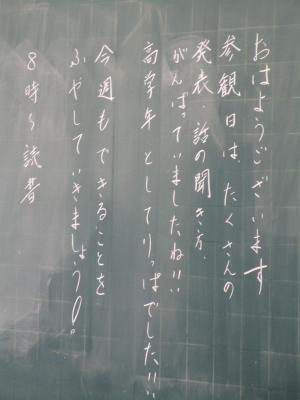 おはようございます
参観日は、たくさんの
発表、話の聞き方、
がんばっていましたね!!!
高学年としてりっぱでした!!!
今週もできることを
ふやしていきましょう!。
8時~読書